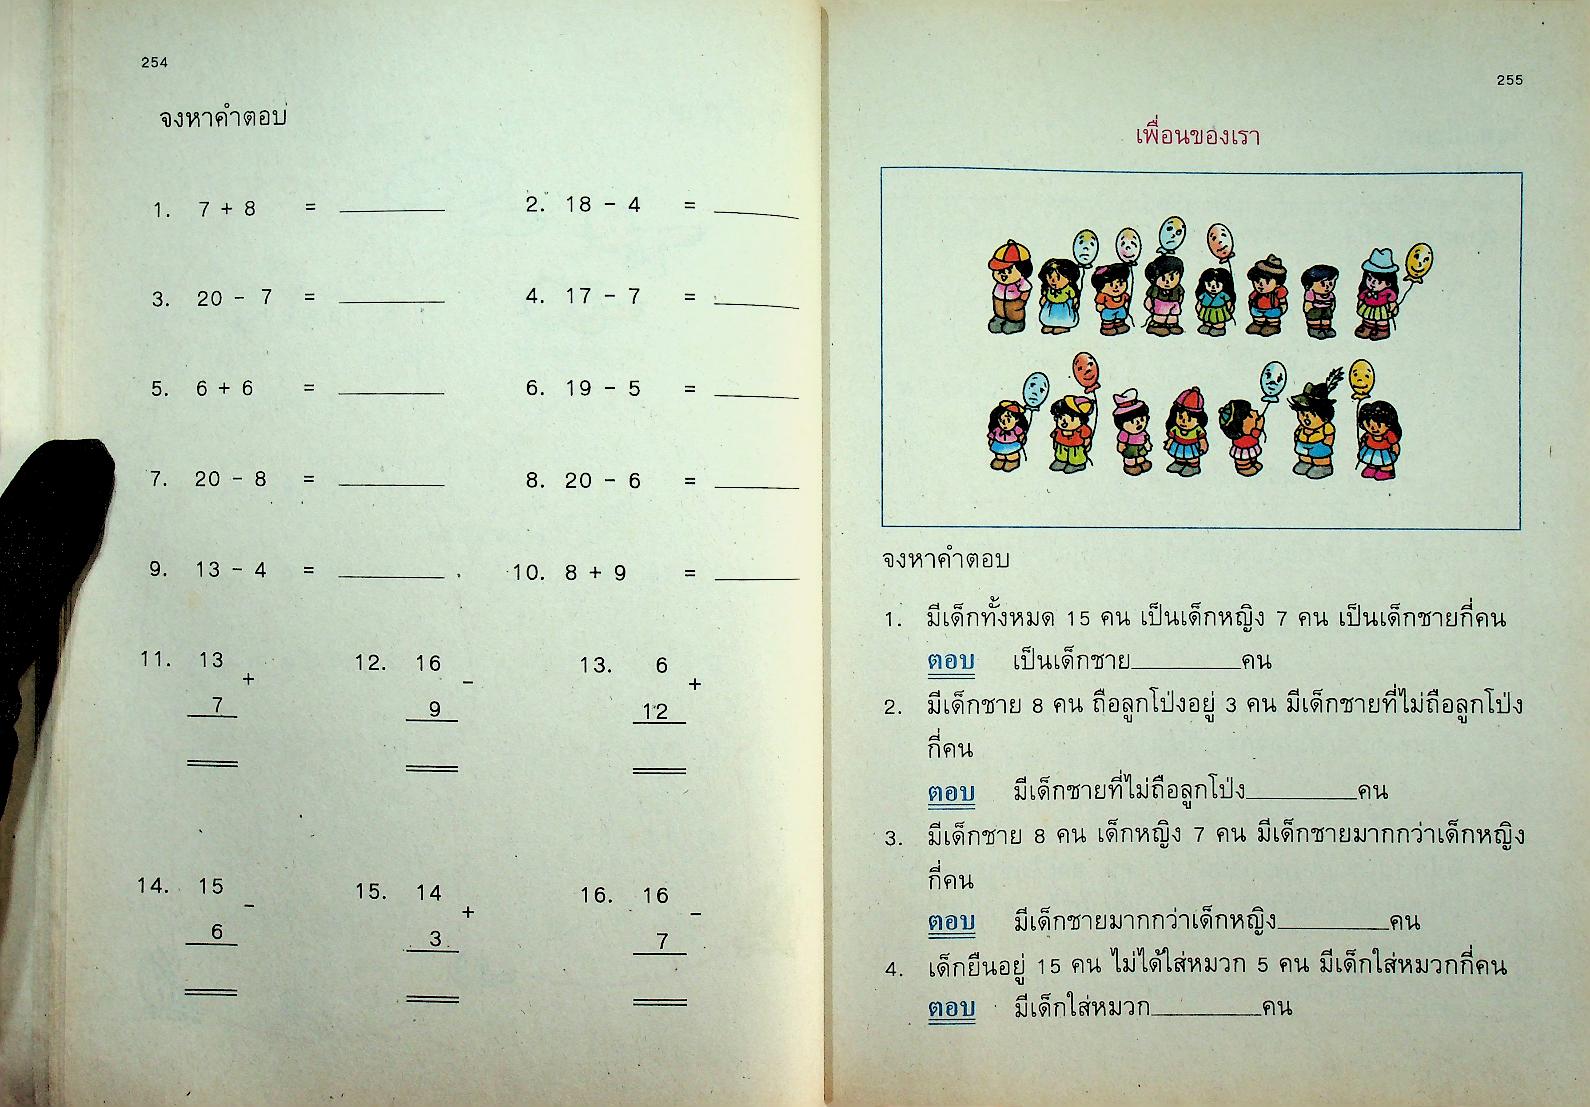 254
จงหาคำตอบ
1. 7 + 8 = ________ 2. 18 - 4 = ________
3. 20 - 7 = ________ 4. 17 - 7 = ________
5. 6 + 6 = ________ 6. 19 - 5 = ________
7. 20 - 8 = ________ 8. 20 - 6 = ________
9. 13 - 4 = ________ 10. 8 + 9 = ________
11. 13 12. 16 13. 6
+ - +
7 9 12
14. 15 15. 14 16. 16
- + -
6 3 7
255
เพื่อนของเรา
จงหาคำตอบ
1. มีเด็กทั้งหมด 15 คน เป็นเด็กหญิง 7 คน เป็นเด็กชายกี่คน
ตอบ เป็นเด็กชาย________คน
2. มีเด็กชาย 8 คน ถือลูกโป่งอยู่ 3 คน มีเด็กชายที่ไม่ถือลูกโป่ง
กี่คน
ตอบ มีเด็กชายที่ไม่ถือลูกโป่ง________คน
3. มีเด็กชาย 8 คน เด็กหญิง 7 คน มีเด็กชายมากกว่าเด็กหญิง
กี่คน
ตอบ มีเด็กชายมากกว่าเด็กหญิง________คน
4. เด็กยืนอยู่ 15 คน ไม่ได้ใส่หมวก 5 คน มีเด็กใส่หมวกกี่คน
ตอบ มีเด็กใส่หมวก________คน